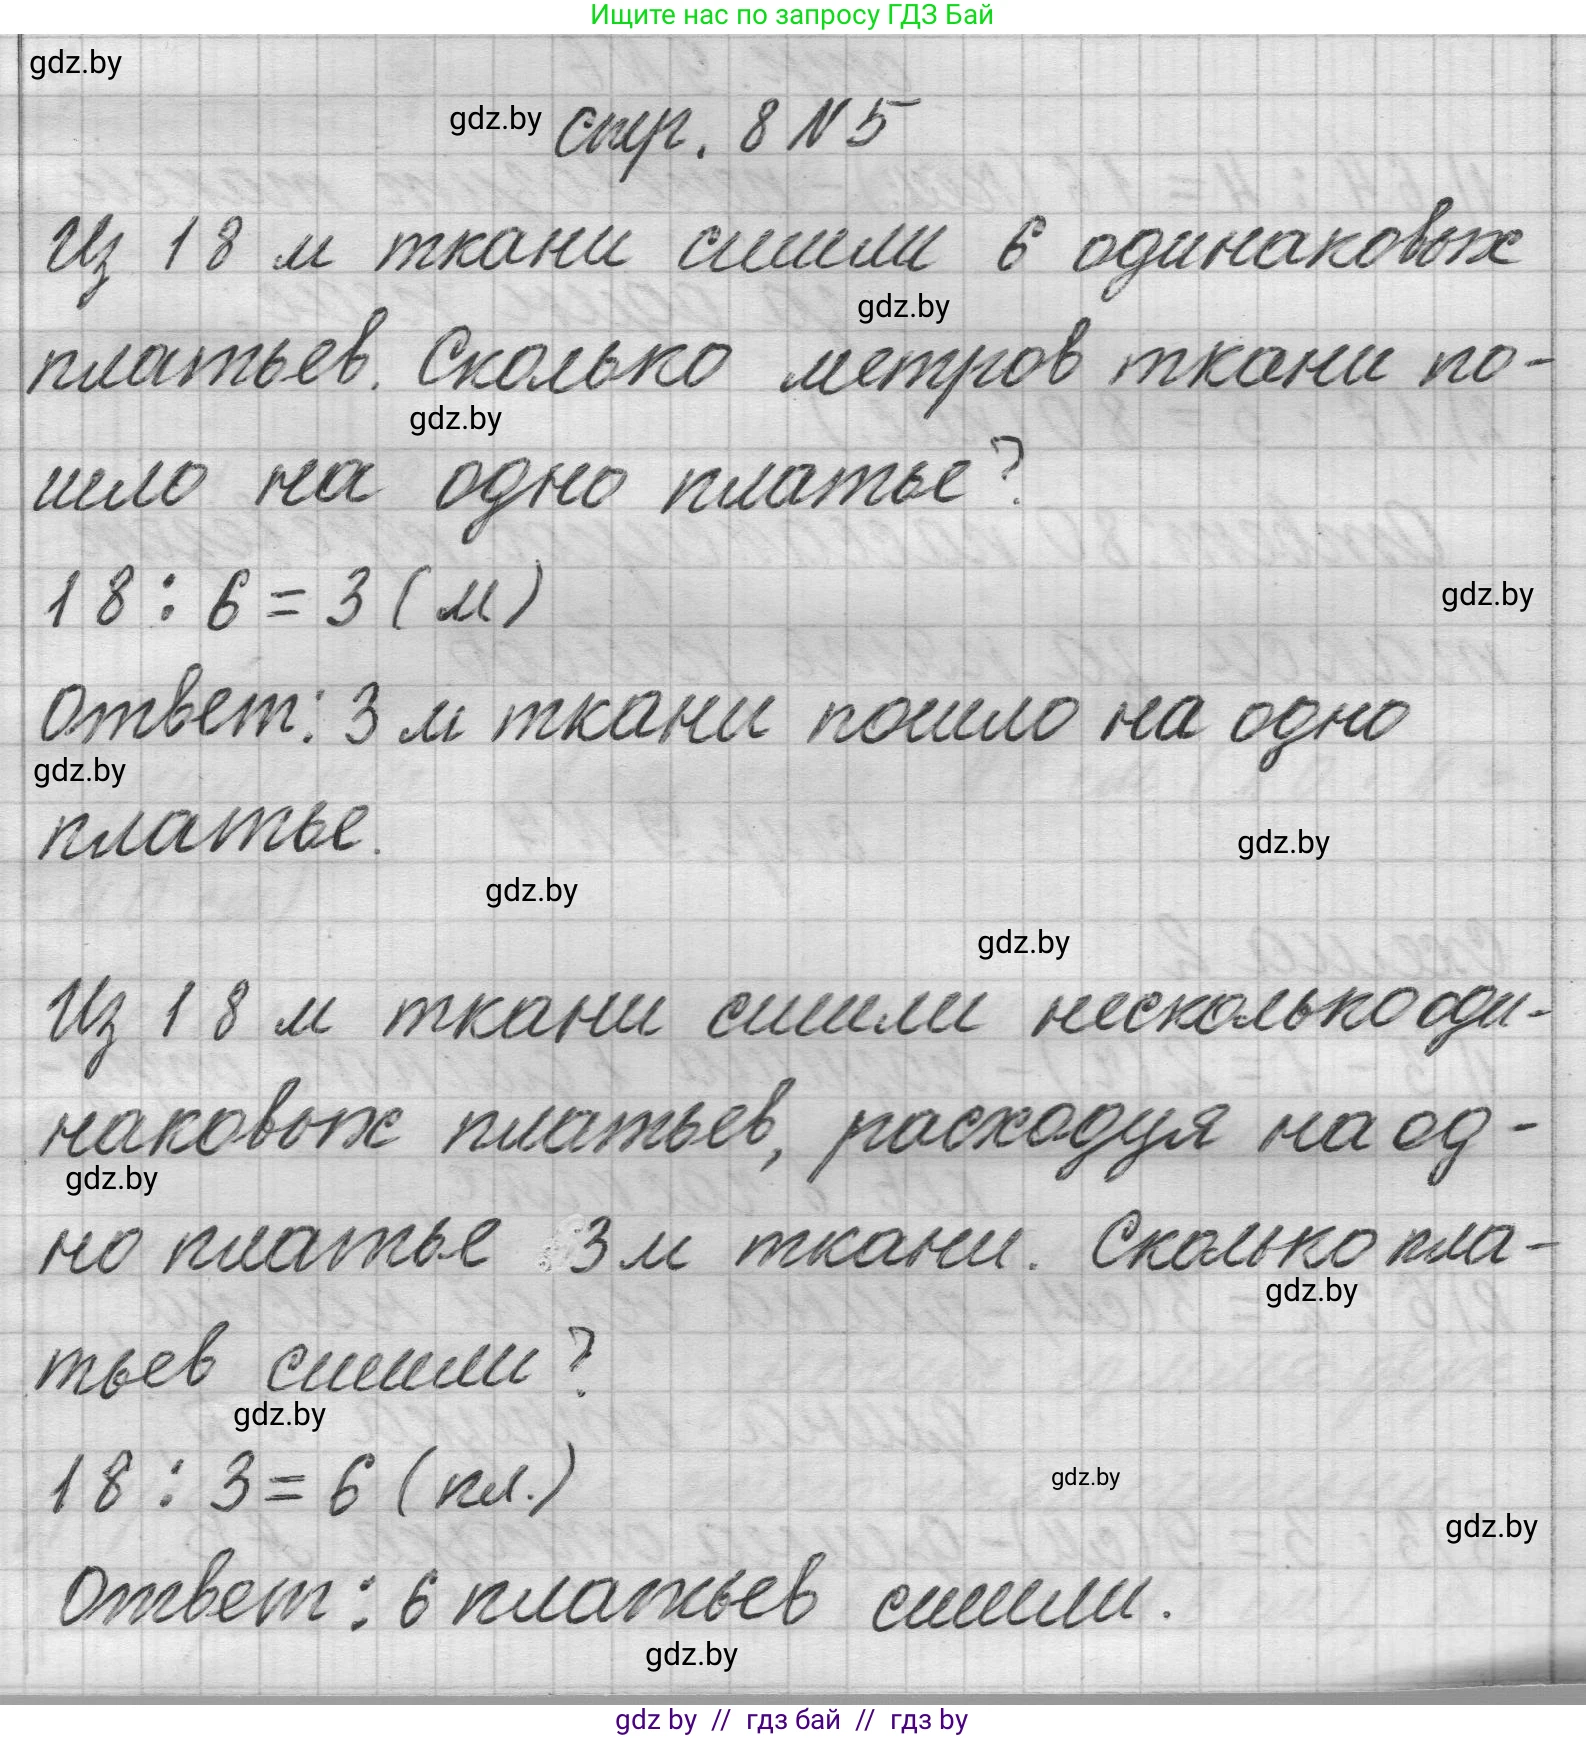 Ищите нас по запросу ГДЗ Бай
gdz.by
gdz.by стр. 8 N 5
Из 18 м ткани сшили 6 одинаковых
gdz.by
платьев. Сколько метров ткани по-
gdz.by
шло на одно платье?
18 : 6 = 3 (м)
gdz.by
Ответ: 3 м ткани пошло на одно
gdz.by
платье.
gdz.by
gdz.by
gdz.by
Из 18 м ткани сшили несколько оди-
наковых платьев, расходуя на од-
gdz.by
но платье 3 м ткани. Сколько пла-
gdz.by
тьев сшили?
gdz.by
18 : 3 = 6 (пл.)
gdz.by
gdz.by
Ответ: 6 платьев сшили.
gdz.by
gdz by // гдз бай // гдз by